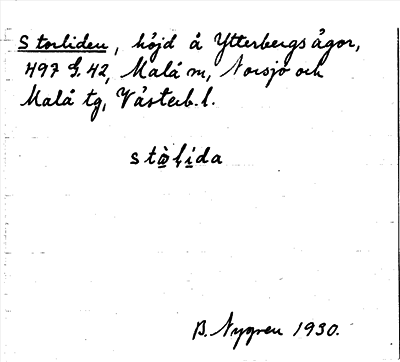 Storliden, höjd å Ytterbergs ägor,
497 G. 42, Malå m, Norsjö och
Malå tg, Västerb. l.
stòl̥ida
B. Nygren 1930.